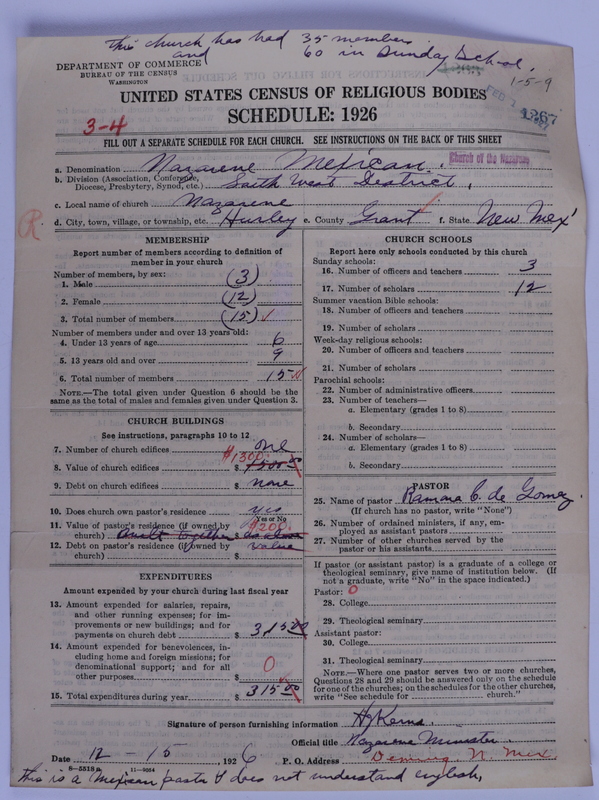 this church has had 35 members
and 60 in Sunday School.
DEPARTMENT OF COMMERCE
BUREAU OF THE CENSUS
WASHINGTON
1-5-9
UNITED STATES CENSUS OF RELIGIOUS BODIES
SCHEDULE: 1926
FEB 1
1267
3-4
FILL OUT A SEPARATE SCHEDULE FOR EACH CHURCH. SEE INSTRUCTIONS ON THE BACK OF THIS SHEET
a. Denomination Nazarene Mexican. Church of the Nazarene
b. Division (Association, Conference, Diocese, Presbytery, Synod, etc.) South West District,
c. Local name of church Nazarene
d. City, town, village, or township, etc. Hurley e. County Grant f. State New Mex
R
MEMBERSHIP
Report number of members according to definition of
member in your church
Number of members, by sex:
1. Male (3)
2. Female (12)
3. Total number of members (15) ✓
Number of members under and over 13 years old:
4. Under 13 years of age 6
5. 13 years old and over 9
6. Total number of members 15
NOTE.—The total given under Question 6 should be the
same as the total of males and females given under Question 3.
CHURCH BUILDINGS
See instructions, paragraphs 10 to 12
7. Number of church edifices one
$1300.
8. Value of church edifices $ 1500.00
9. Debt on church edifices $ none
10. Does church own pastor's residence yes
Yes or No
11. Value of pastor's residence (if owned by $200.
church) built together $ as above
12. Debt on pastor's residence (if owned by value
church) $
EXPENDITURES
Amount expended by your church during last fiscal year
13. Amount expended for salaries, repairs,
and other running expenses; for im-
provements or new buildings; and for
payments on church debt $ 315.00
14. Amount expended for benevolences, in-
cluding home and foreign missions; for
denominational support; and for all
other purposes $ 0
15. Total expenditures during year $ 315.00
CHURCH SCHOOLS
Report here only schools conducted by this church
Sunday schools:
16. Number of officers and teachers 3
17. Number of scholars 12
Summer vacation Bible schools:
18. Number of officers and teachers
19. Number of scholars
Week-day religious schools:
20. Number of officers and teachers
21. Number of scholars
Parochial schools:
22. Number of administrative officers
23. Number of teachers—
a. Elementary (grades 1 to 8)
b. Secondary
24. Number of scholars—
a. Elementary (grades 1 to 8)
b. Secondary
PASTOR
25. Name of pastor Ramona C. de Gomez
(If church has no pastor, write "None")
26. Number of ordained ministers, if any, em-
ployed as assistant pastors
27. Number of other churches served by the
pastor or his assistants
If pastor (or assistant pastor) is a graduate of a college or
theological seminary, give name of institution below. (If
not a graduate, write "No" in the space indicated.)
Pastor: 0
28. College
29. Theological seminary
Assistant pastor:
30. College
31. Theological seminary
NOTE.—Where one pastor serves two or more churches,
Questions 28 and 29 should be answered only on the schedule
for one of the churches; on the schedules for the other churches,
write "See schedule for church."
Signature of person furnishing information
Official title Nazarene Minister
Date 12-15 1926 P. O. Address Deming N. Mex.
8—5518a 11—9054
this is a Mexican pastor & does not understand english,